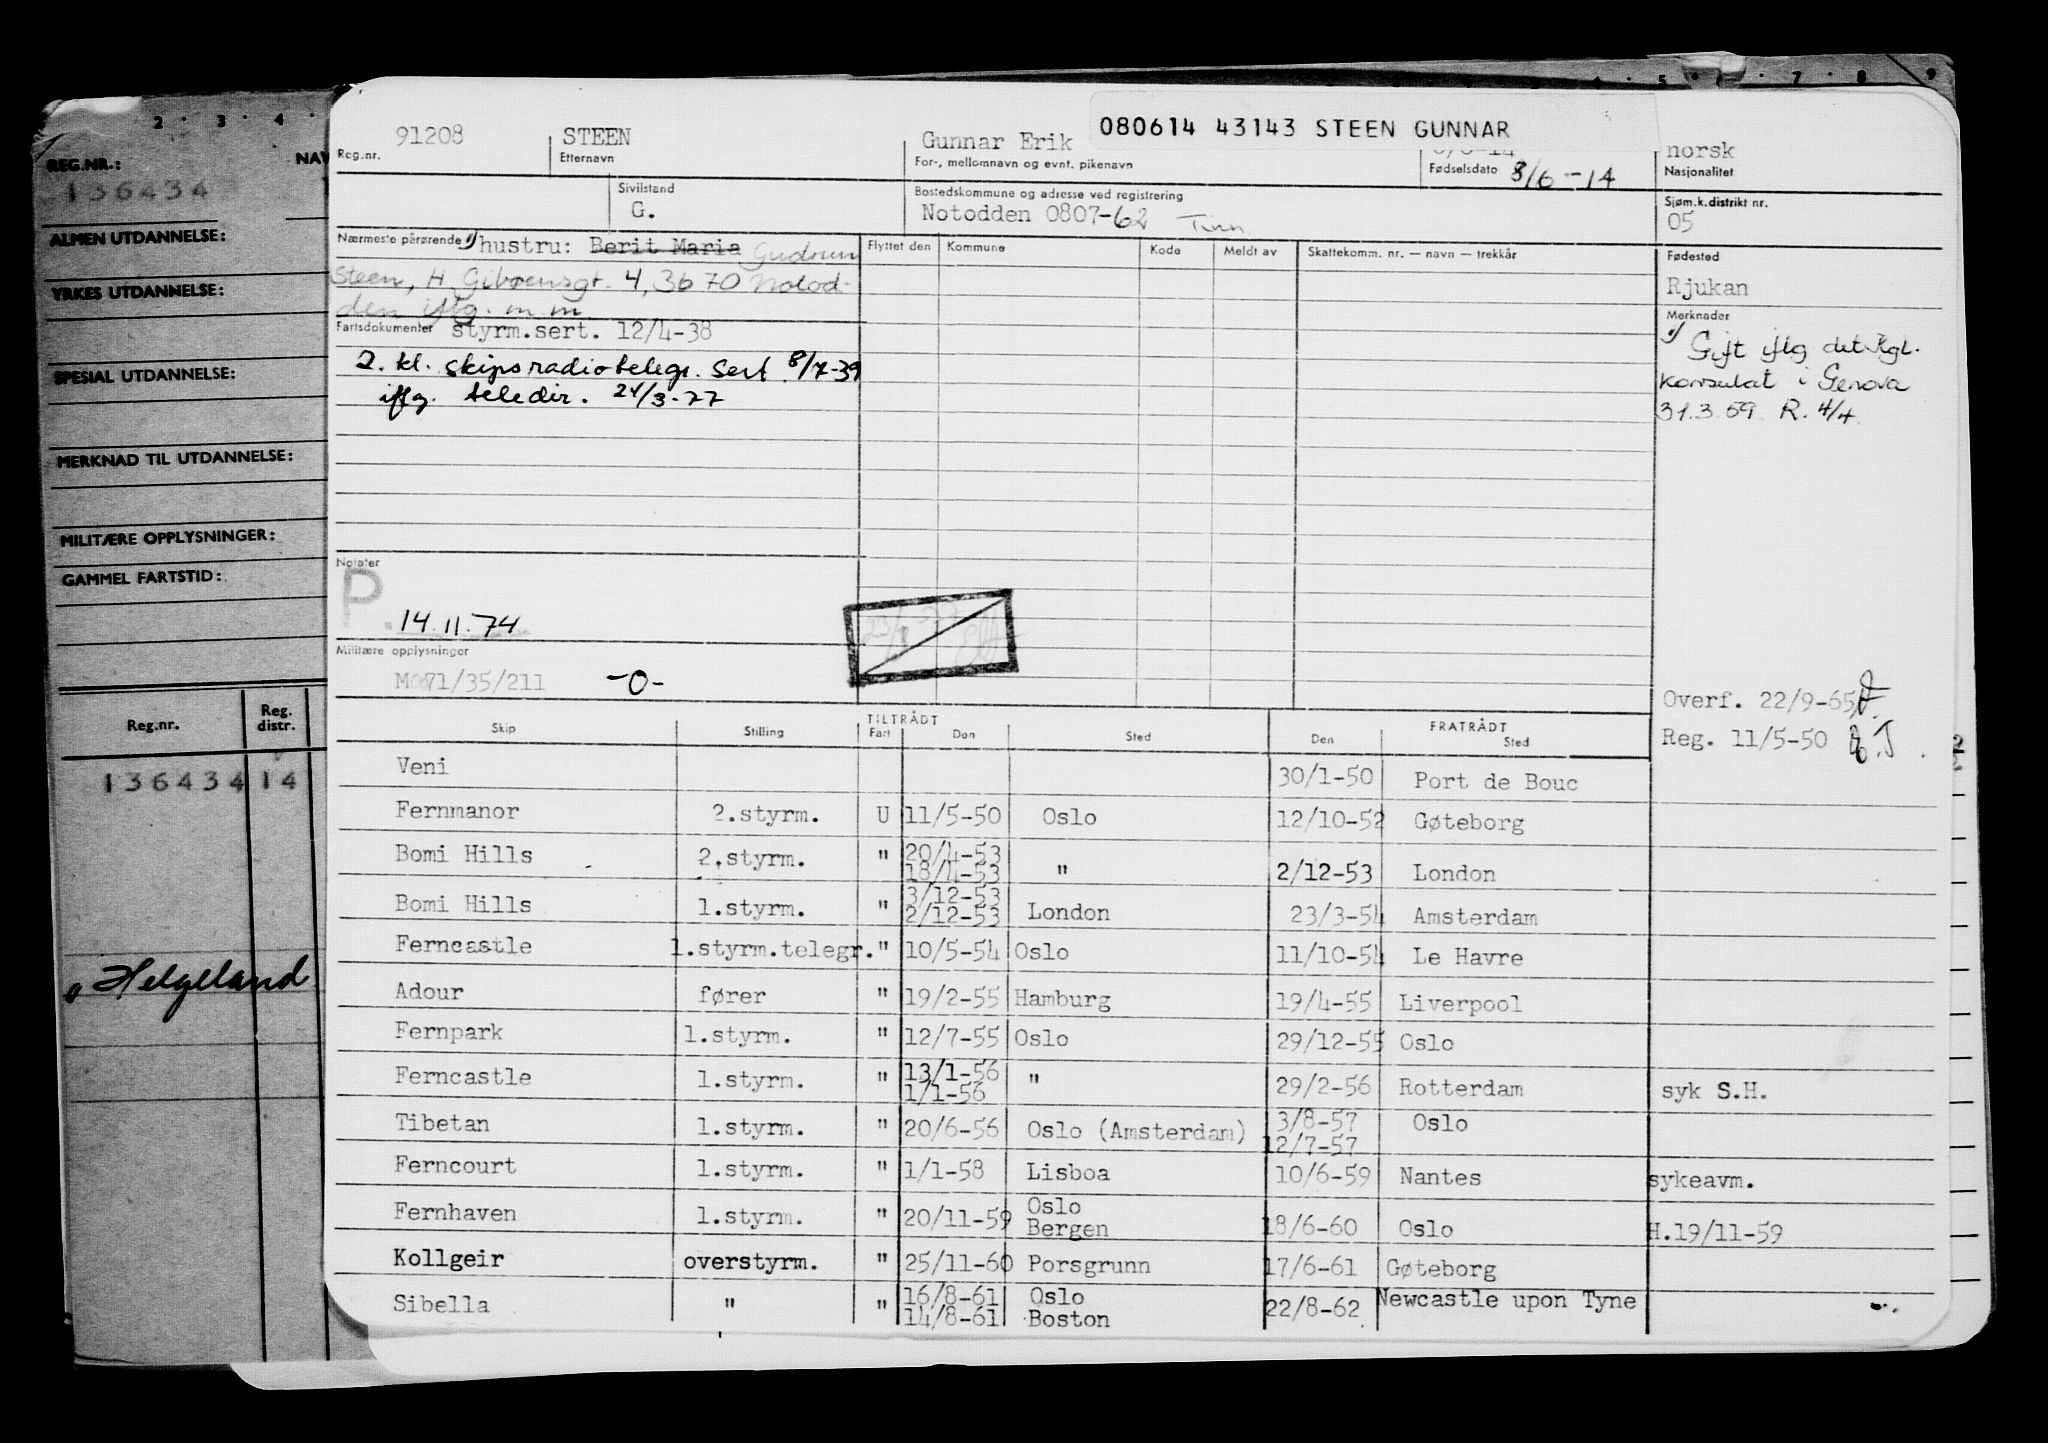 2 · 3 · 4 ·
5 · 6 · 7 · 8 9
REG.NR.:
136434
ALMEN UTDANNELSE:
YRKES UTDANNELSE:
SPESIAL UTDANNELSE:
MERKNAD TIL UTDANNELSE:
MILITÆRE OPPLYSNINGER:
GAMMEL FARTSTID:
Reg.nr. Reg. distr.
136434 14
" Helgeland
080614 43143 STEEN GUNNAR
91208 STEEN Gunnar Erik norsk
Reg.nr. Etternavn For-, mellomnavn og evnt. pikenavn Fødselsdato 8/6-14 Nasjonalitet
Sivilstand Bostedskommune og adresse ved registrering Sjøm.k.distrikt nr.
G. Notodden 0807-62 Tinn 05
Nærmeste pårørende 1) hustru: Berit Maria Gudrun Flyttet den Kommune Kode Meldt av Skattekomm. nr. — navn — trekkår Fødested
Steen, H. Gibsensgt. 4, 3670 Notod- Rjukan
den iflg. m.m. Merknader
Fartsdokumenter styrm.sert. 12/4-38
1) Gift iflg det Kgl.
2. kl. skipsradiotelegr. Sert. 8/7-39 konsulat i Genova
iflg. teledir. 24/3-77 31.3.69 R. 4/4.
Notater
P. 14.11.74
Militære opplysninger
71/35/211 -0-
Overf. 22/9-65
Reg. 11/5-50
TILTRÅDT FRATRÅDT
Skip Stilling Fart Den Sted Den Sted
Veni 30/1-50 Port de Bouc
Fernmanor 2.styrm. U 11/5-50 Oslo 12/10-52 Gøteborg
Bomi Hills 2.styrm. " 20/4-53 18/4-53 " 2/12-53 London
Bomi Hills 1.styrm. " 3/12-53 2/12-53 London 23/3-54 Amsterdam
Ferncastle 1.styrm.telegr. " 10/5-54 Oslo 11/10-54 Le Havre
Adour fører " 19/2-55 Hamburg 19/4-55 Liverpool
Fernpark 1.styrm. " 12/7-55 Oslo 29/12-55 Oslo
Ferncastle 1.styrm. " 13/1-56 1/1-56 " 29/2-56 Rotterdam syk S.H.
Tibetan 1.styrm. " 20/6-56 Oslo (Amsterdam) 3/8-57 12/7-57 Oslo
Ferncourt 1.styrm. " 1/1-58 Lisboa 10/6-59 Nantes sykeavm.
Fernhaven 1.styrm. " 20/11-59 Oslo Bergen 18/6-60 Oslo H.19/11-59
Kollgeir overstyrm. " 25/11-60 Porsgrunn 17/6-61 Gøteborg
Sibella " " 16/8-61 14/8-61 Oslo Boston 22/8-62 Newcastle upon Tyne